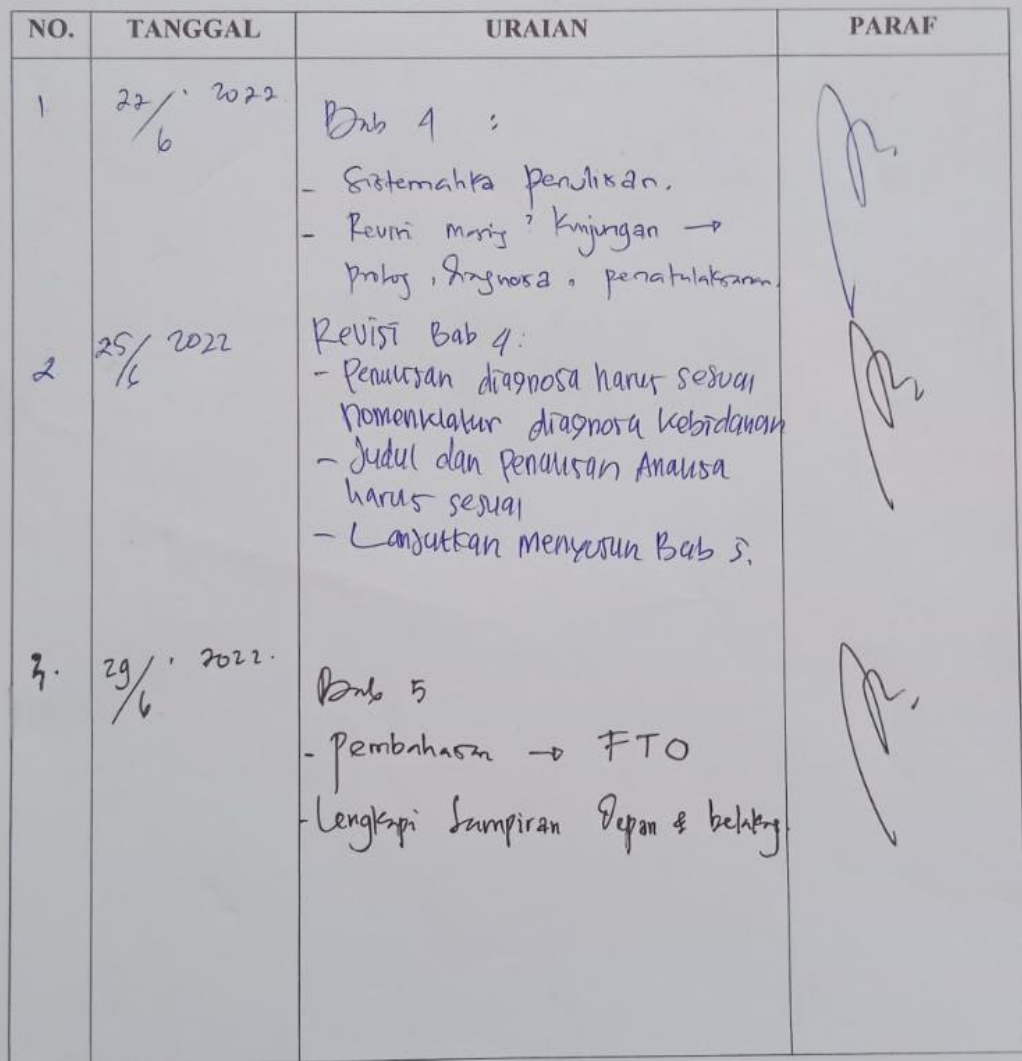 NO. TANGGAL URAIAN PARAF
1 22/6 2022 Bab 4 :
- Sistematika penulisan.
- Revisi masing² Kunjungan →
prolog, diagnosa, penatalaksanaan.
2 25/6 2022 Revisi Bab 4:
- Penulisan diagnosa harus sesuai
nomenklatur diagnosa kebidanan
- Judul dan Penulisan Analisa
harus sesuai
- Lanjutkan menyusun Bab 5.
3. 29/6 2022. Bab 5
- Pembahasan → FTO
- Lengkapi Lampiran Depan & belakang